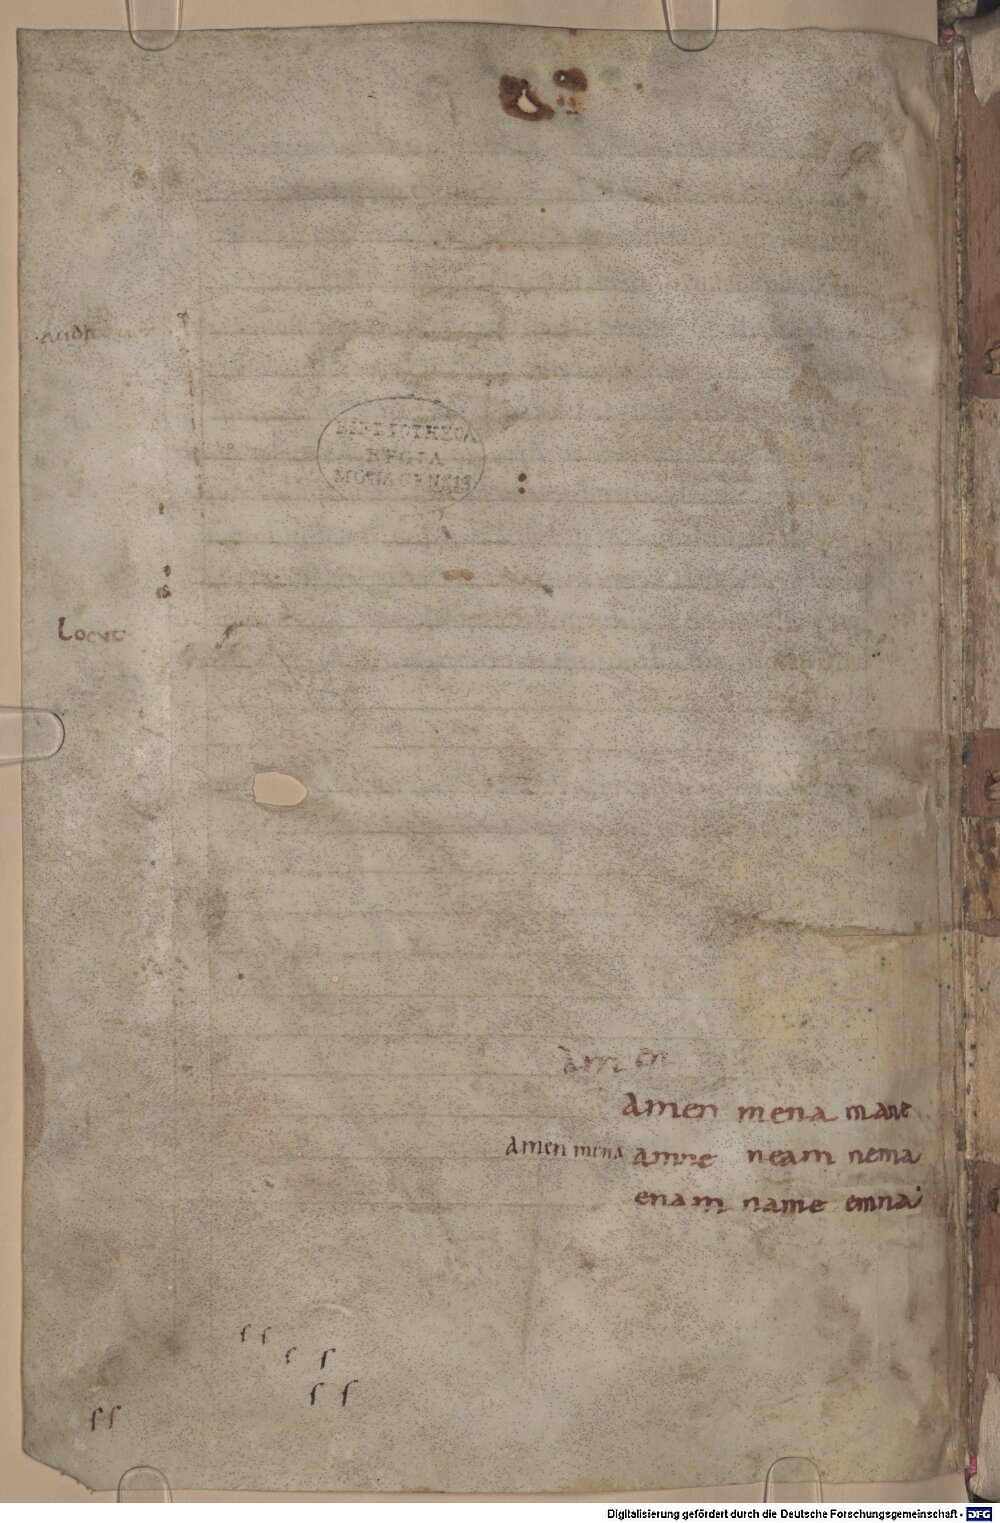 BIBLIOTHECA
REGIA
MONACENSIS
Locut
Am en
Amen mena mane
Amen mena amne neam nema
enam name emna
ſ ſ
ſ ſ
ſ ſ
ſ ſ
Digitalisierung gefördert durch die Deutsche Forschungsgemeinschaft - DFG